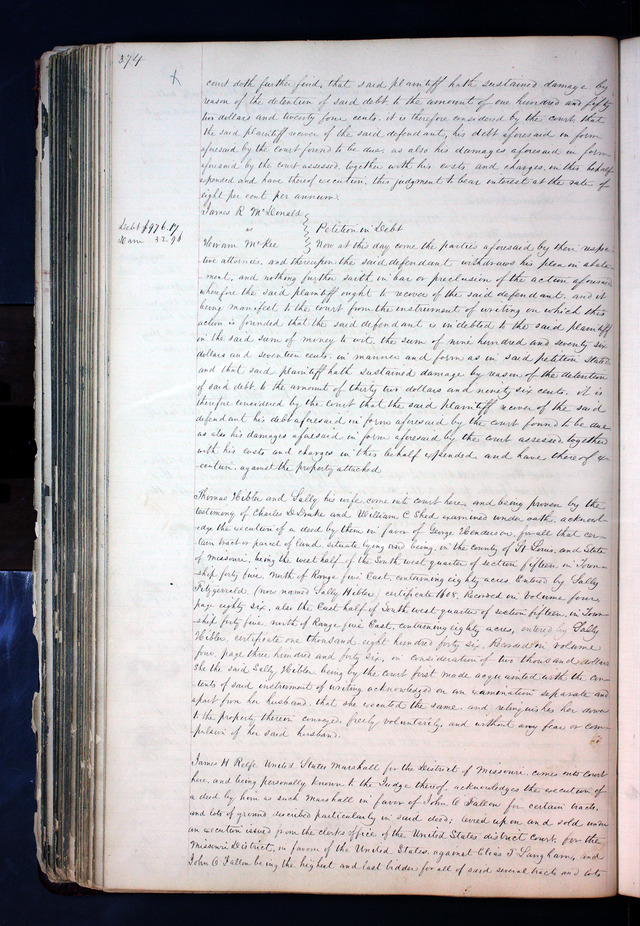 374
court doth further find, that said plaintiff hath sustained damage by
reason of the detention of said debt to the amount of one hundred and fifty
two dollars and twenty four cents. it is therefore considered by the court that
the said plaintiff recover of the said defendant, his debt aforesaid in form
aforesaid by the court found to be due. as also his damages aforesaid in form
aforesaid by the court assessed, together with his costs and charges, in this behalf
expended and have thereof execution, this judgment to bear interest at the rate of
eight per cent per annum.
James R McDonald
Debt $976.17
" Petition in Debt
Dam 32.96
Hiram McKee Now at this day come the parties aforesaid by their respec
tive attornies, and thereupon the said defendant withdraws his plea in abate
ment, and nothing further saith in bar or preclusion of the action aforesaid
wherefore the said plaintiff ought to recover of the said defendant. and it
being manifest to the court from the instrument of writing on which this
action is founded that the said defendant is indebted to the said plaintiff
in the said sum of money to wit, the sum of nine hundred and seventy six
dollars and seventeen cents. in manner and form as in said petition stated
and that said plaintiff hath sustained damage by reason of the detention
of said debt to the amount of thirty two dollars and ninety six cents. it is
therefore considered by the court that the said plaintiff recover of the said
defendant his debt aforesaid in form aforesaid by the court found to be due
as also his damages aforesaid in form aforesaid by the court assessed, together
with his costs and charges in this behalf expended and have thereof ex
ecution. against the property attached
Thomas Hibler and Sally his wife come into court here, and being proven by the
testimony of Charles D Drake and William C Shed examined under oath, acknowl
edge the execution of a deed by them in favor of George Henderson, for all that cer
tain tract or parcel of land, situate lying and being, in the county of St Louis, and State
of Missouri, being the west half of the South west quarter of section fifteen, in Town
ship forty five, North of Range five East, containing eighty acres Entered by Sally
Fitzgerrald, (now named Sally Hibler) certificate 1608. Recorded in Volume four
page eighty six, also the East half of South west quarter of section fifteen, in Town
ship forty five north of Range five East, containing eighty acres, entered by Sally
Hibler, certificate one thousand eight hundred forty six, Recorded in volume
four, page three hundred and forty six, in consideration of two thousand dollars
She the said Sally Hibler being by the court first made acquainted with the con
tents of said instrument of writing acknowledged on an examination separate and
apart from her husband, that she executed the same and relinquishes her dower
to the property therein conveyed, freely voluntarily, and without any fear or com
pulsion of her said husband.
James H Relfe United States Marshall for the District of Missouri, comes into Court
here, and being personally known to the Judge thereof, acknowledges the execution of
a deed by him as such Marshall in favor of John O Fallon for certain tracts,
and lots of ground described particularly in said deed; levied upon and sold under
an execution issued from the clerks office of the United States district court, for the
Missouri District, in favor of the United States, against Elias T Langham, and
John O Fallon being the highest and last bidder for all of said several tracts and lots